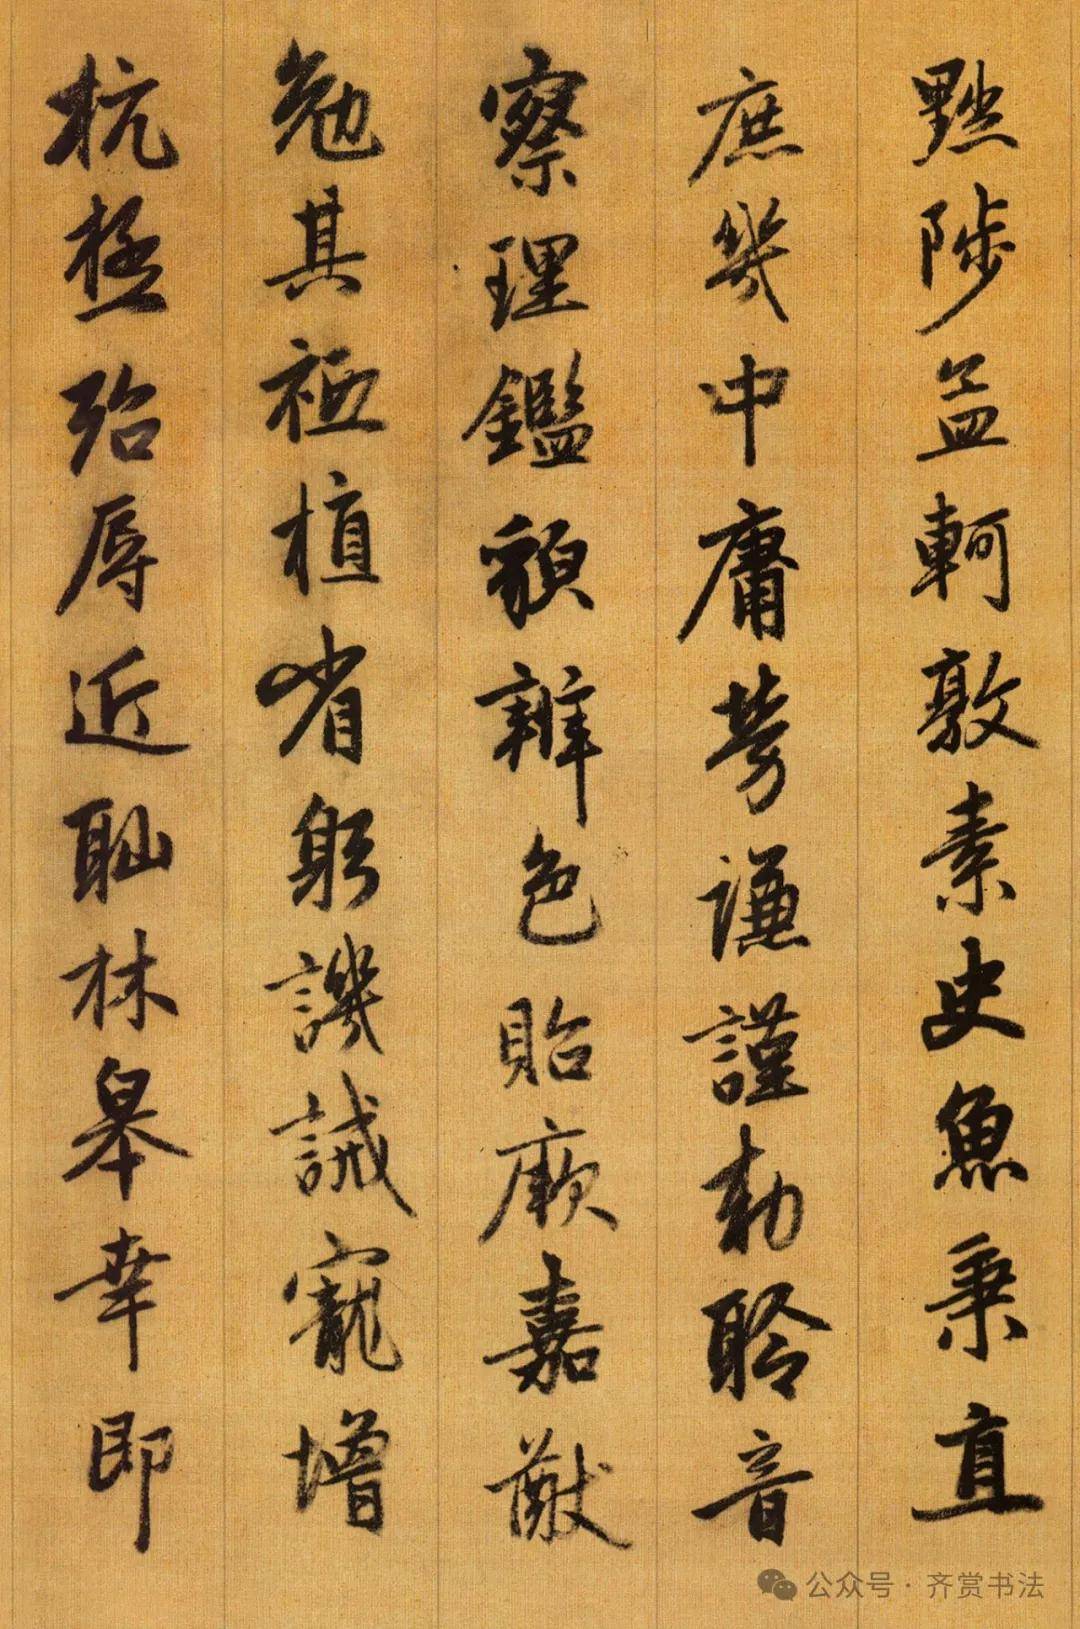 黜陟孟軻敦素史魚秉直
庶幾中庸勞謙謹勑聆音
察理鑑貌辨色貽厥嘉猷
勉其祗植省躬譏誡寵增
杭極殆辱近耻林皋幸即
公众号·齐赏书法